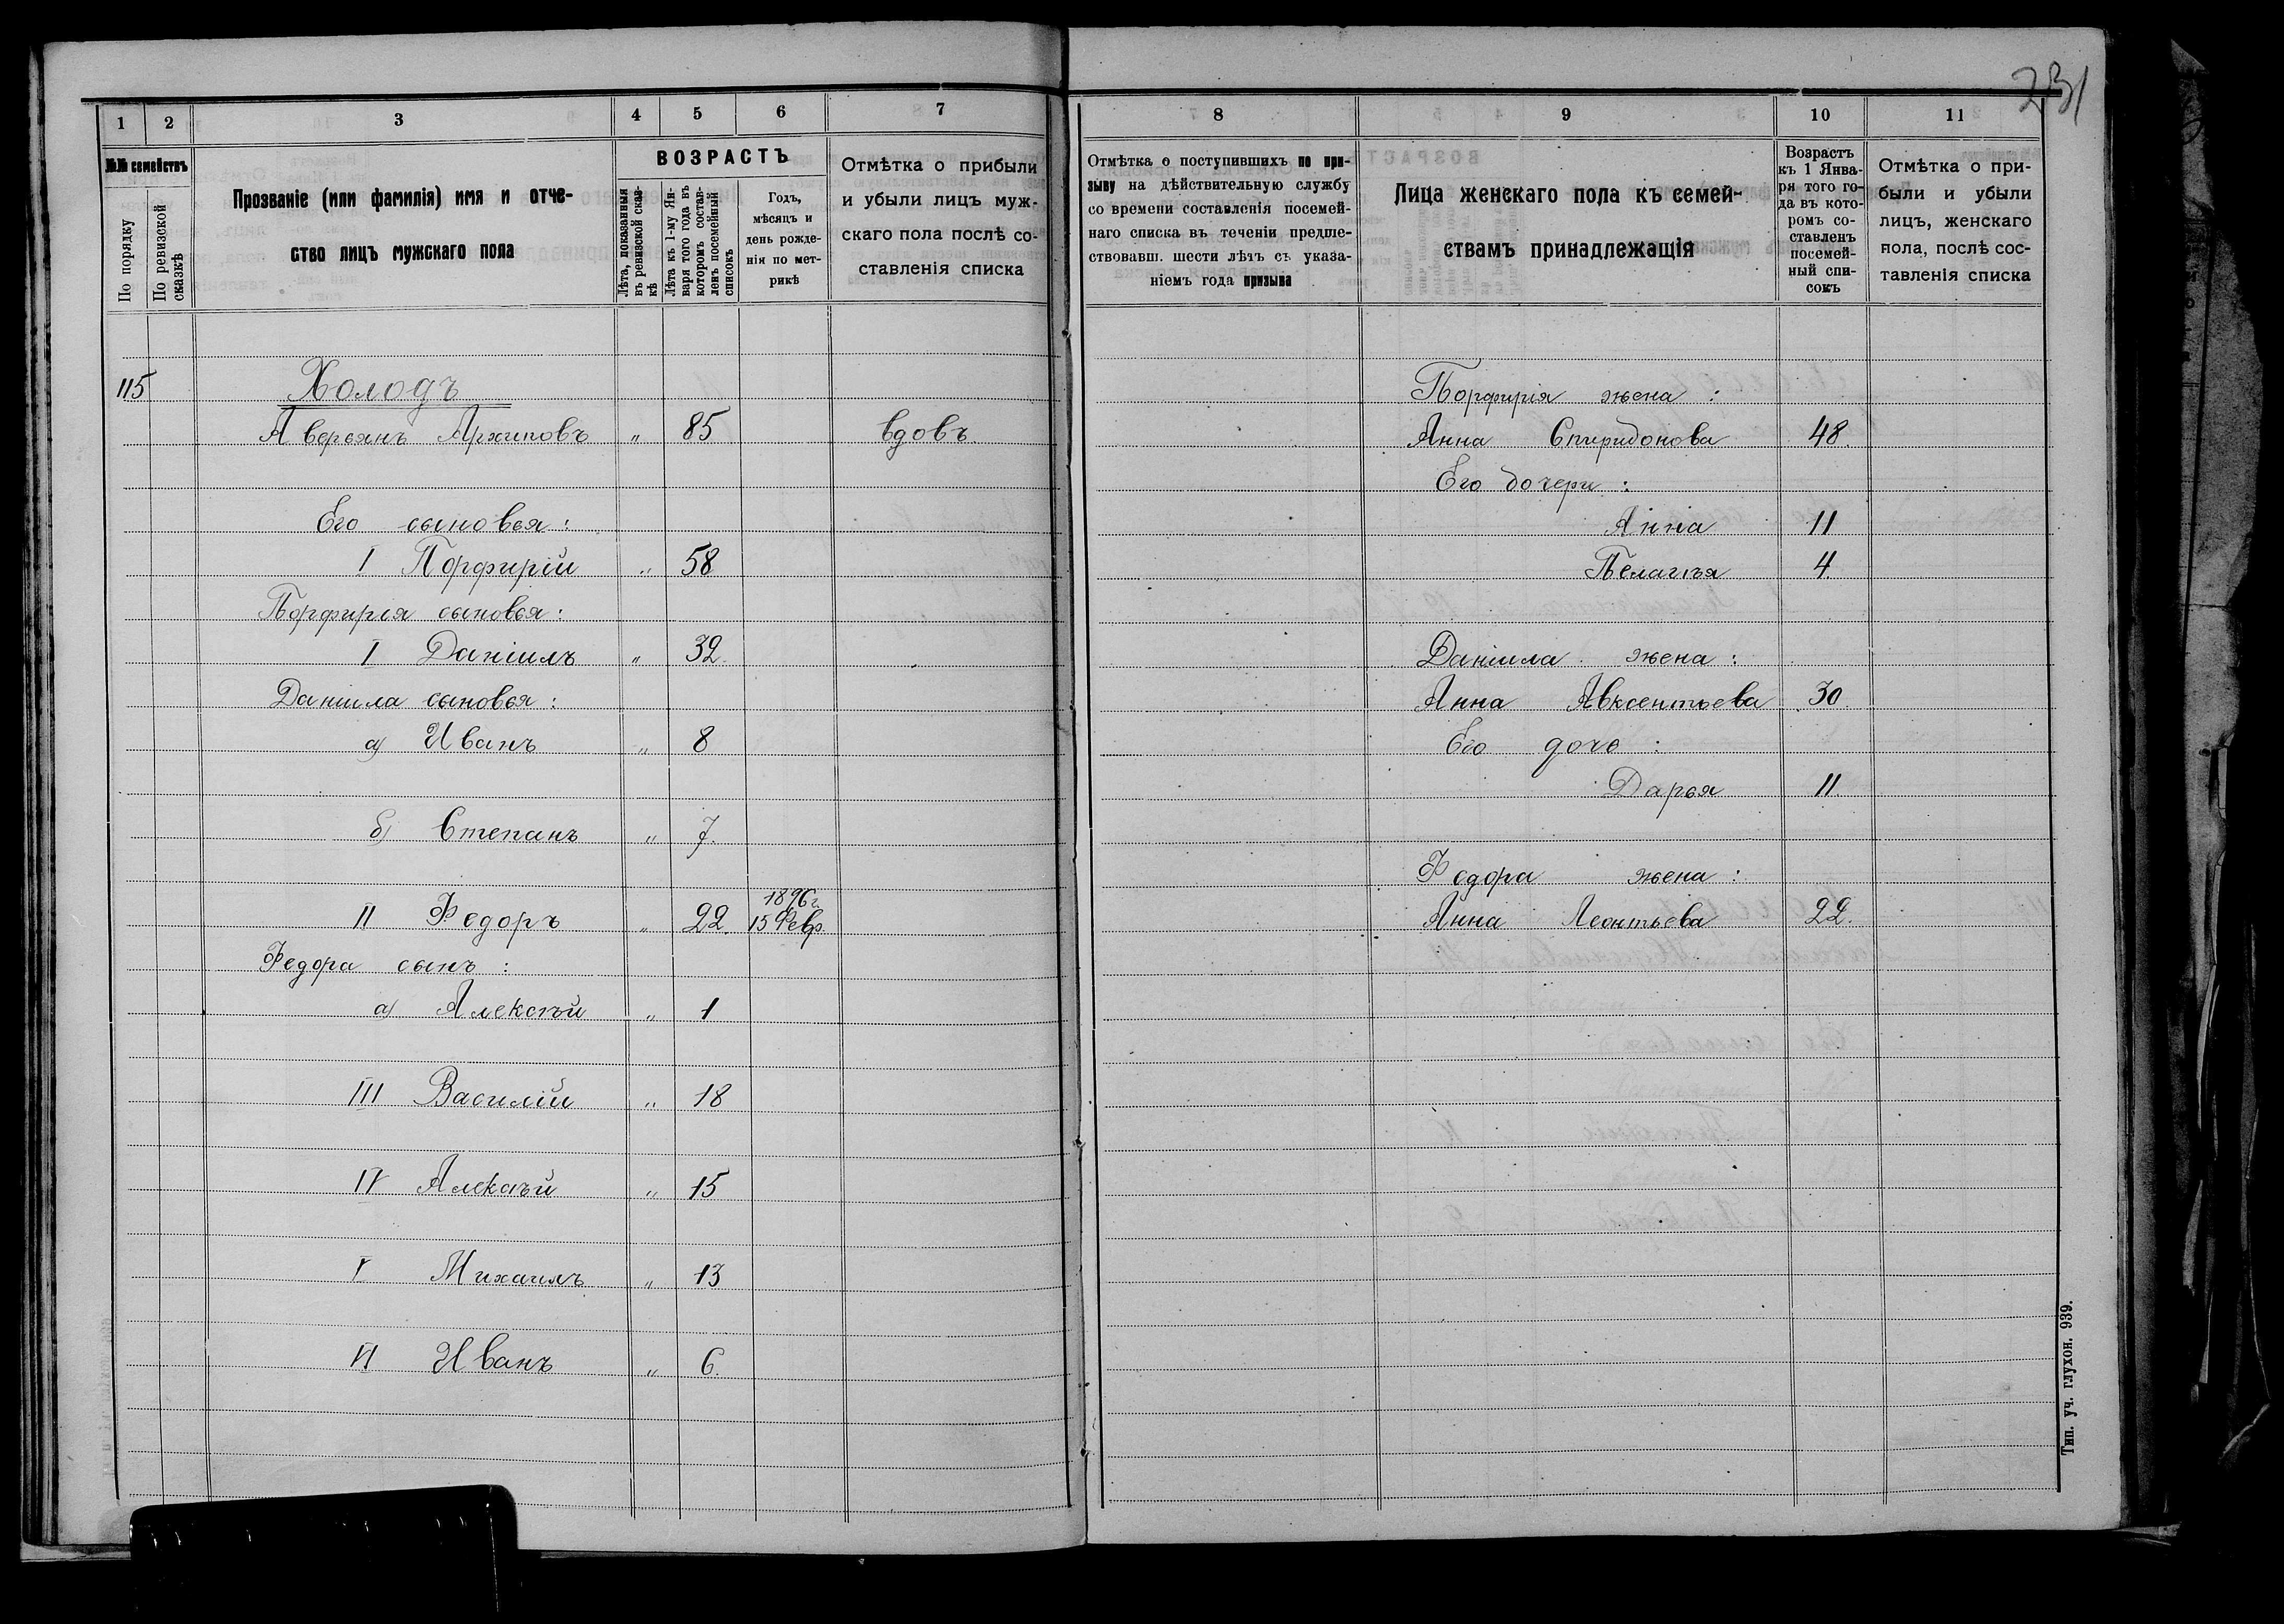 231
1 2 3 4 5 6 7
№№ семействъ
По порядку
По ревизской сказкѣ
Прозваніе (или фамилія) имя и отче-
ство лицъ мужскаго пола
ВОЗРАСТЪ
Лѣта, показанныя
въ ревизской сказ-
кѣ
Лѣта къ 1-му Ян-
варя того года въ
которомъ состав-
ленъ посемейный
списокъ
Годъ,
мѣсяцъ и
день рожде-
нія по мет-
рикѣ
Отмѣтка о прибыли
и убыли лицъ муж-
скаго пола послѣ со-
ставленія списка
115 Холодъ
Аверьянъ Архиповъ " 85 вдовъ
Его сыновья:
I Порфирій " 58
Порфирія сыновья:
I Даніилъ " 32
Даніила сыновья:
а) Иванъ " 8
б) Степанъ " 7.
1896 г.
II Федоръ " 22. 15 Февр.
Федора сынъ:
а) Алексѣй " 1
III Василій " 18
IV Алексѣй " 15
V Михаилъ " 13
VI Иванъ " 6.
8 9 10 11
Отмѣтка о поступившихъ по при-
зыву на дѣйствительную службу
со времени составленія посемей-
наго списка въ теченіи предше-
ствовавш. шести лѣтъ съ указа-
ніемъ года призыва
Лица женскаго пола къ семей-
ствамъ принадлежащія
Возрастъ
къ 1 Янва-
ря того го-
да въ кото-
ромъ со-
ставленъ
посемей-
ный спи-
сокъ
Отмѣтка о при-
были и убыли
лицъ, женскаго
пола, послѣ сос-
тавленія списка
Порфирія жена:
Анна Спиридонова 48
Его дочери:
Анна 11
Пелагѣя 4.
Даніила жена:
Анна Авксентьева 30
Его дочь:
Дарья 11
Федора жена:
Анна Леонтьева 22.
Тип. уч. глухон. 939.